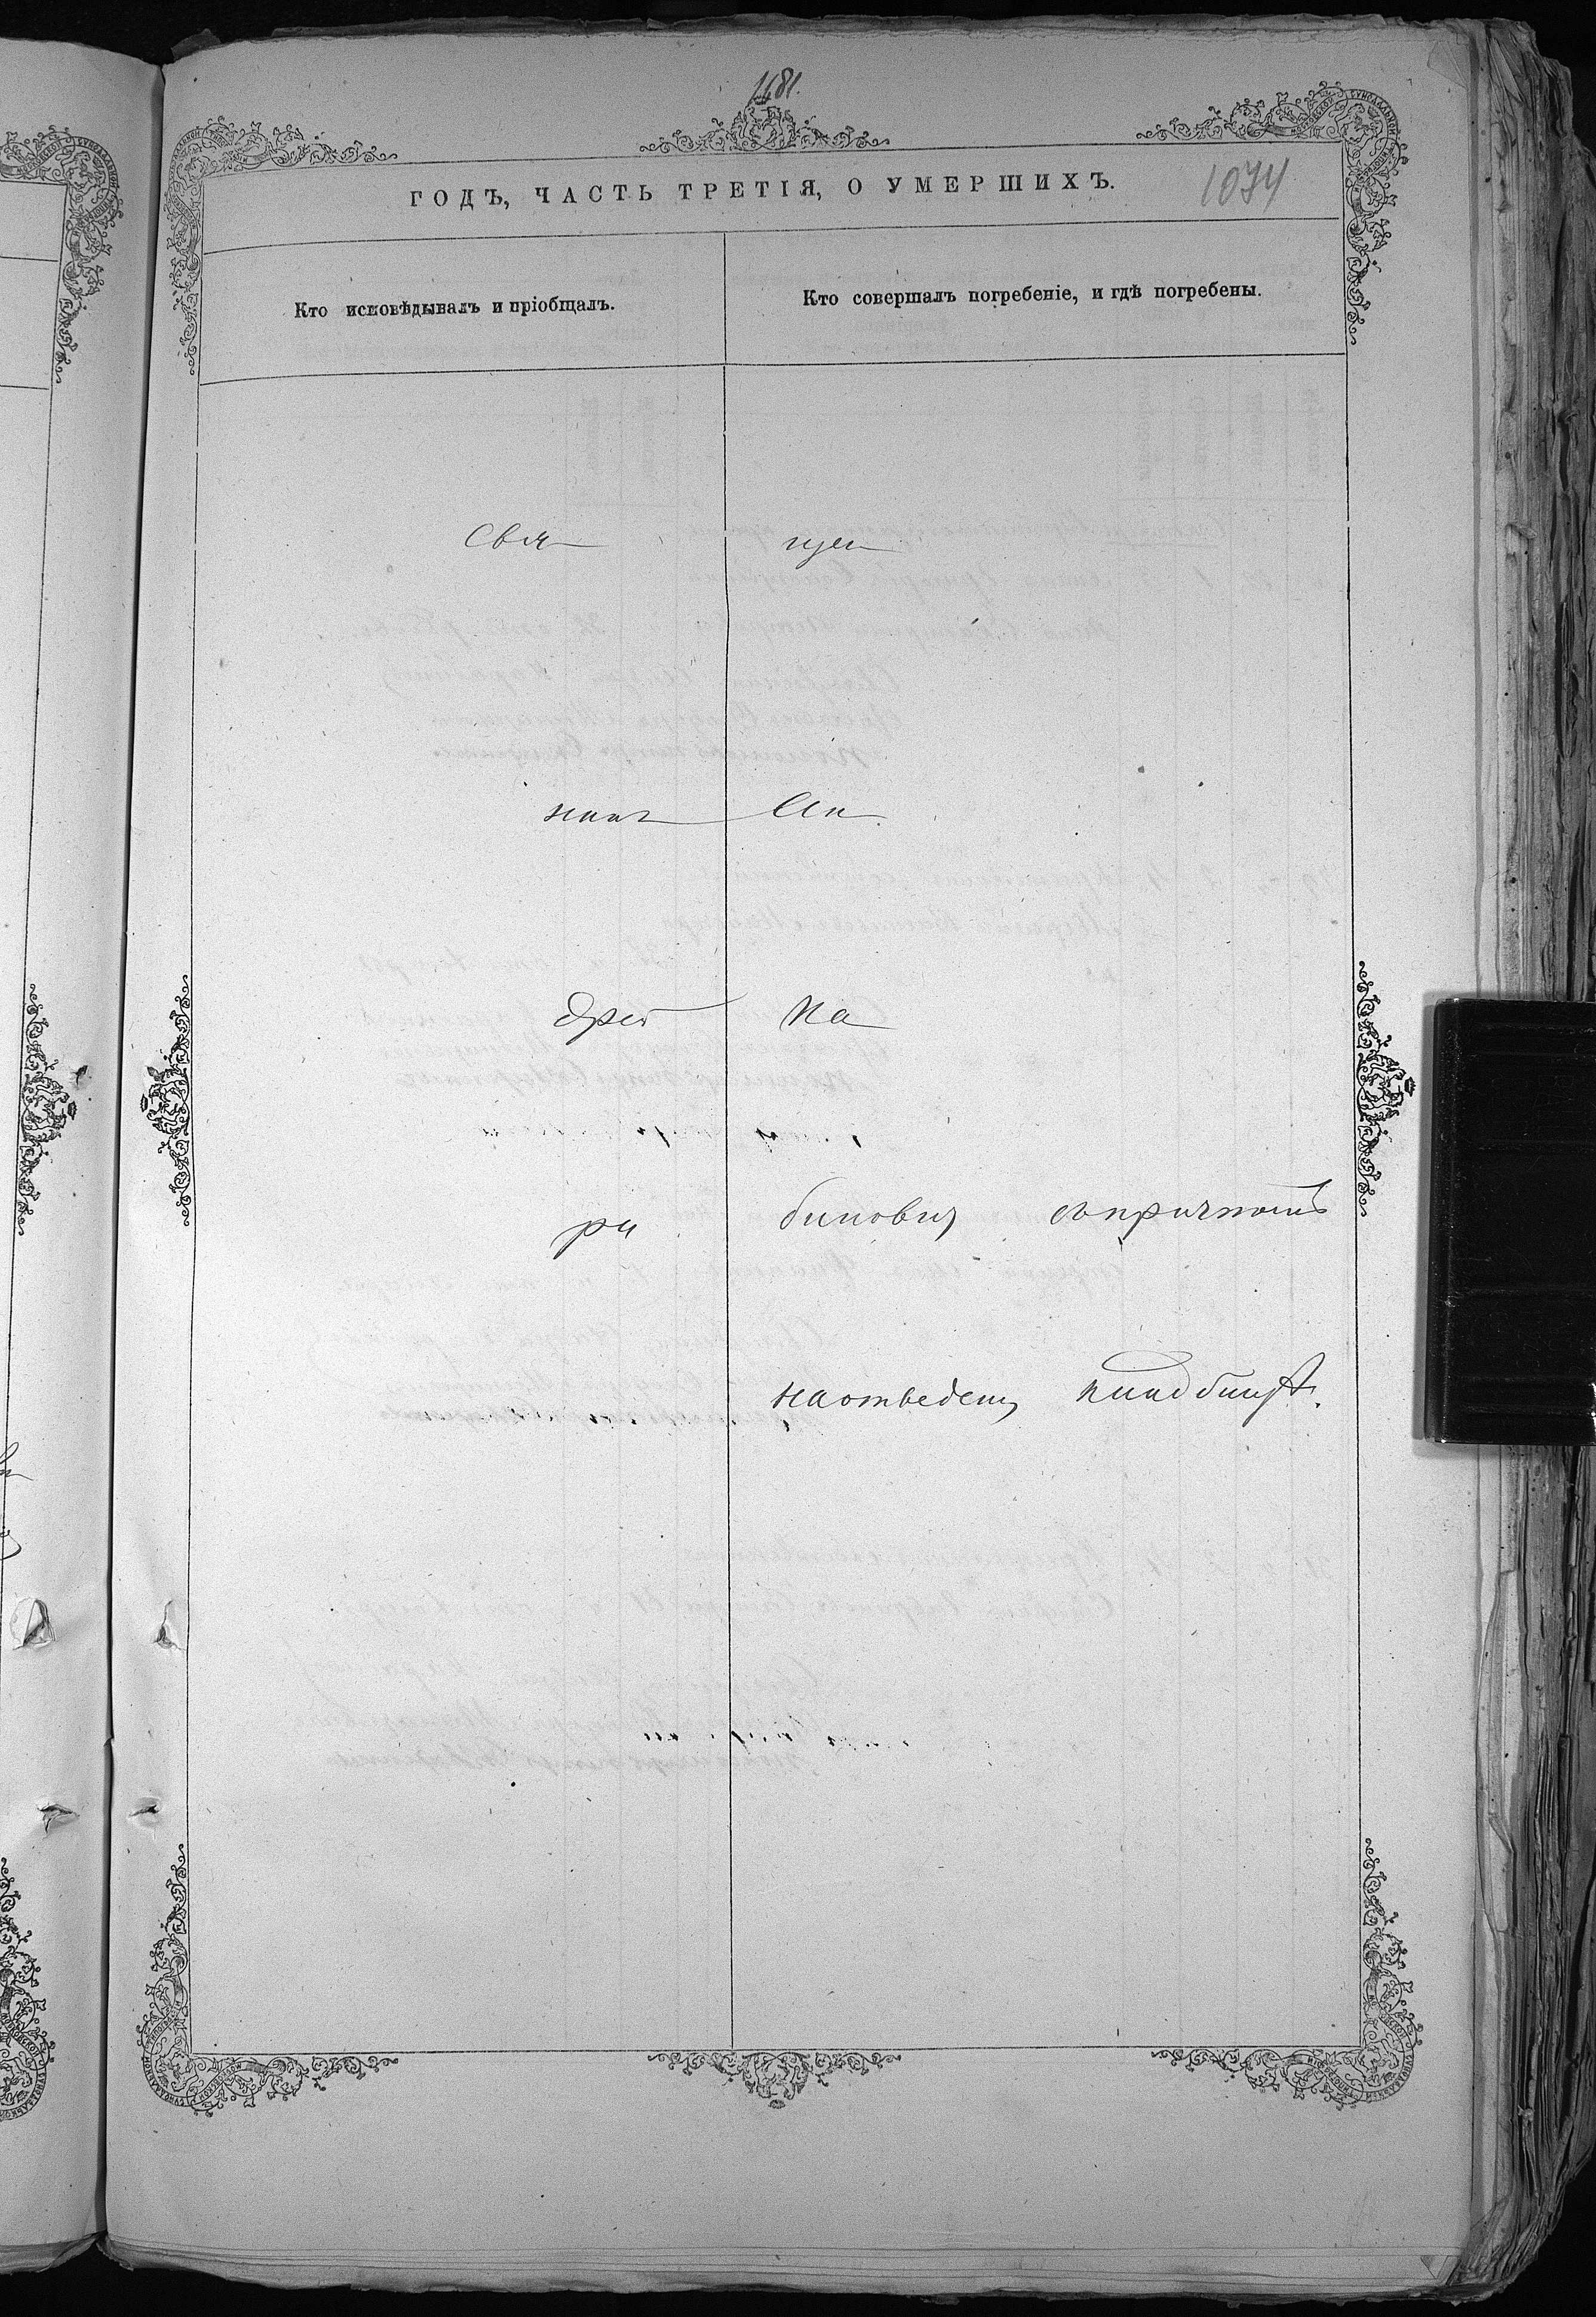 1481.
ГОДЪ, ЧАСТЬ ТРЕТІЯ, О УМЕРШИХЪ. 1074
Кто исповѣдывалъ и пріобщалъ. Кто совершалъ погребеніе, и гдѣ погребены.
Свя щен
никъ Ан
дрей Ка
ра биновъ съ причтомъ
на отведен кладбищѣ.